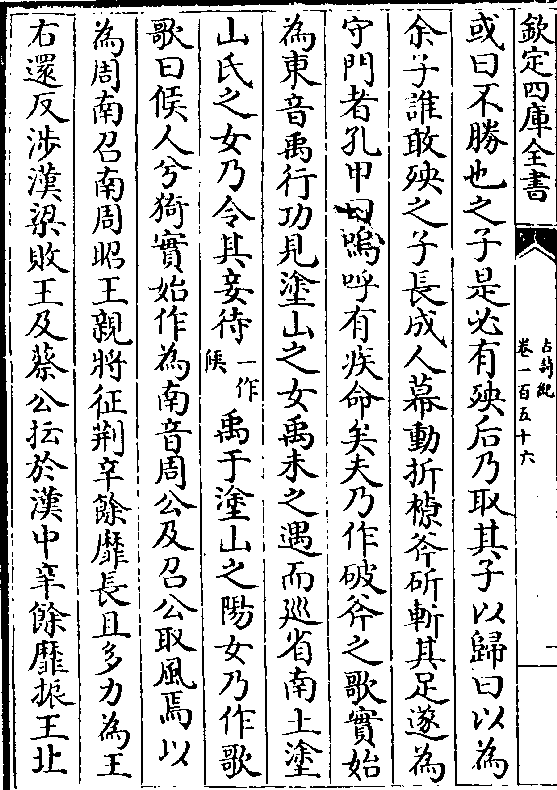 欽定四庫全書
古詩紀
卷一百五十六
或曰不勝也之子是必有殃后乃取其子以歸曰以為
余子誰敢殃之子長成人幕動折橑斧斫斬其足遂為
守門者孔甲曰嗚呼有疾命矣夫乃作破斧之歌實始
為東音禹行功見塗山之女禹未之遇而巡省南土塗
山氏之女乃令其妾待一作候禹于塗山之陽女乃作歌
歌曰候人兮猗實始作為南音周公及召公取風焉以
為周南召南周昭王親將征荆辛餘靡長且多力為王
右還反涉漢梁敗王及蔡公抎於漢中辛餘靡振王北